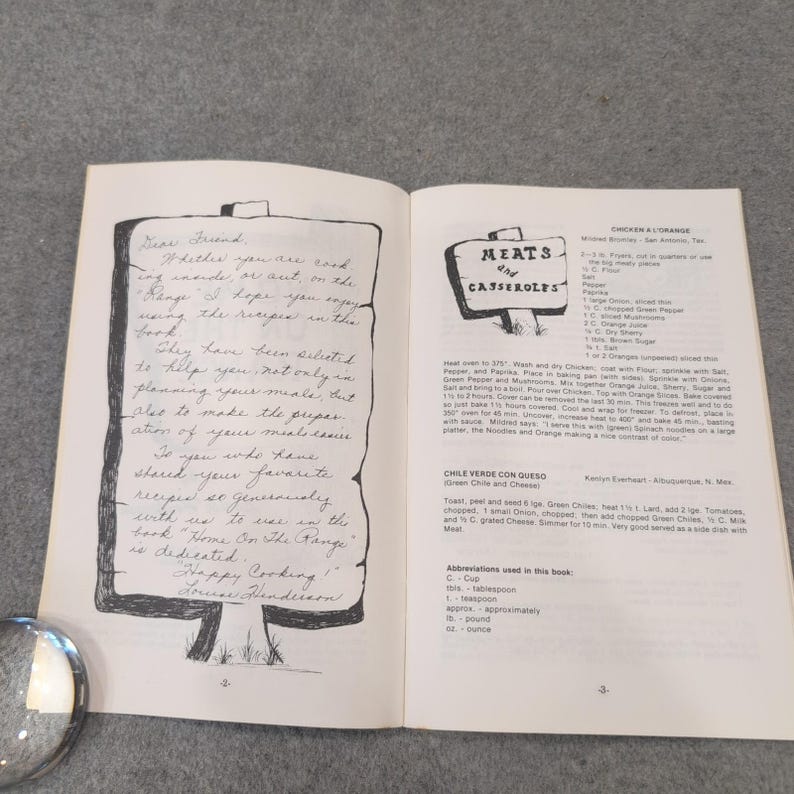 Dear Friend,
Whether you are cook-
ing inside, or out, on the
"Range" I hope you enjoy
using the recipes in this
book.
They have been selected
to help you, not only in
planning your meals, but
also to make the prepar-
ation of your meals easier
To you who have
shared your favorite
recipes so generously
with us to use in this
book "Home On The Range"
is dedicated.
"Happy Cooking!"
Louise Henderson
-2-
MEATS
and
CASSEROLES
CHICKEN A L'ORANGE
Mildred Bromley - San Antonio, Tex.
2—3 lb. Fryers, cut in quarters or use
the big meaty pieces
½ C. Flour
Salt
Pepper
Paprika
1 large Onion; sliced thin
½ C. chopped Green Pepper
1 C. sliced Mushrooms
2 C. Orange Juice
¼ C. Dry Sherry
1 tbls. Brown Sugar
¾ t. Salt
1 or 2 Oranges (unpeeled) sliced thin
Heat oven to 375°. Wash and dry Chicken; coat with Flour; sprinkle with Salt,
Pepper, and Paprika. Place in baking pan (with sides). Sprinkle with Onions,
Green Pepper and Mushrooms. Mix together Orange Juice, Sherry, Sugar and
Salt and bring to a boil. Pour over Chicken. Top with Orange Slices. Bake covered
1½ to 2 hours. Cover can be removed the last 30 min. This freezes well and to do
so just bake 1½ hours covered. Cool and wrap for freezer. To defrost, place in
350° oven for 45 min. Uncover, increase heat to 400° and bake 45 min., basting
with sauce. Mildred says: "I serve this with (green) Spinach noodles on a large
platter, the Noodles and Orange making a nice contrast of color."
CHILE VERDE CON QUESO Kenlyn Everheart - Albuquerque, N. Mex.
(Green Chile and Cheese)
Toast, peel and seed 6 lge. Green Chiles; heat 1½ t. Lard, add 2 lge. Tomatoes,
chopped, 1 small Onion, chopped; then add chopped Green Chiles, ½ C. Milk
and ½ C. grated Cheese. Simmer for 10 min. Very good served as a side dish with
Meat.
Abbreviations used in this book:
C. - Cup
tbls. - tablespoon
t. - teaspoon
approx. - approximately
lb. - pound
oz. - ounce
-3-